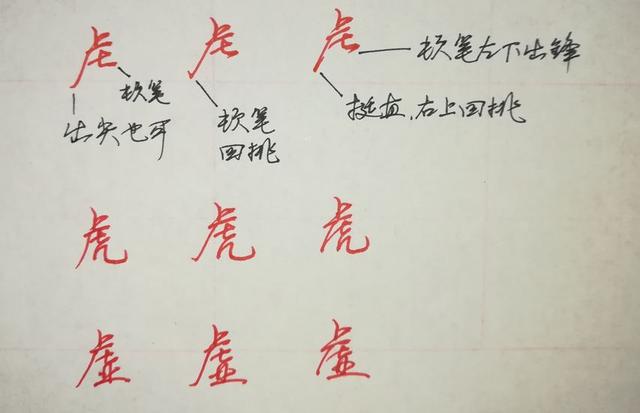 虍 虍 虍
顿笔左下出锋
顿笔
出尖也可
顿笔
回挑
挺直,右上回挑
虎 虎 虎
虚 虚 虚